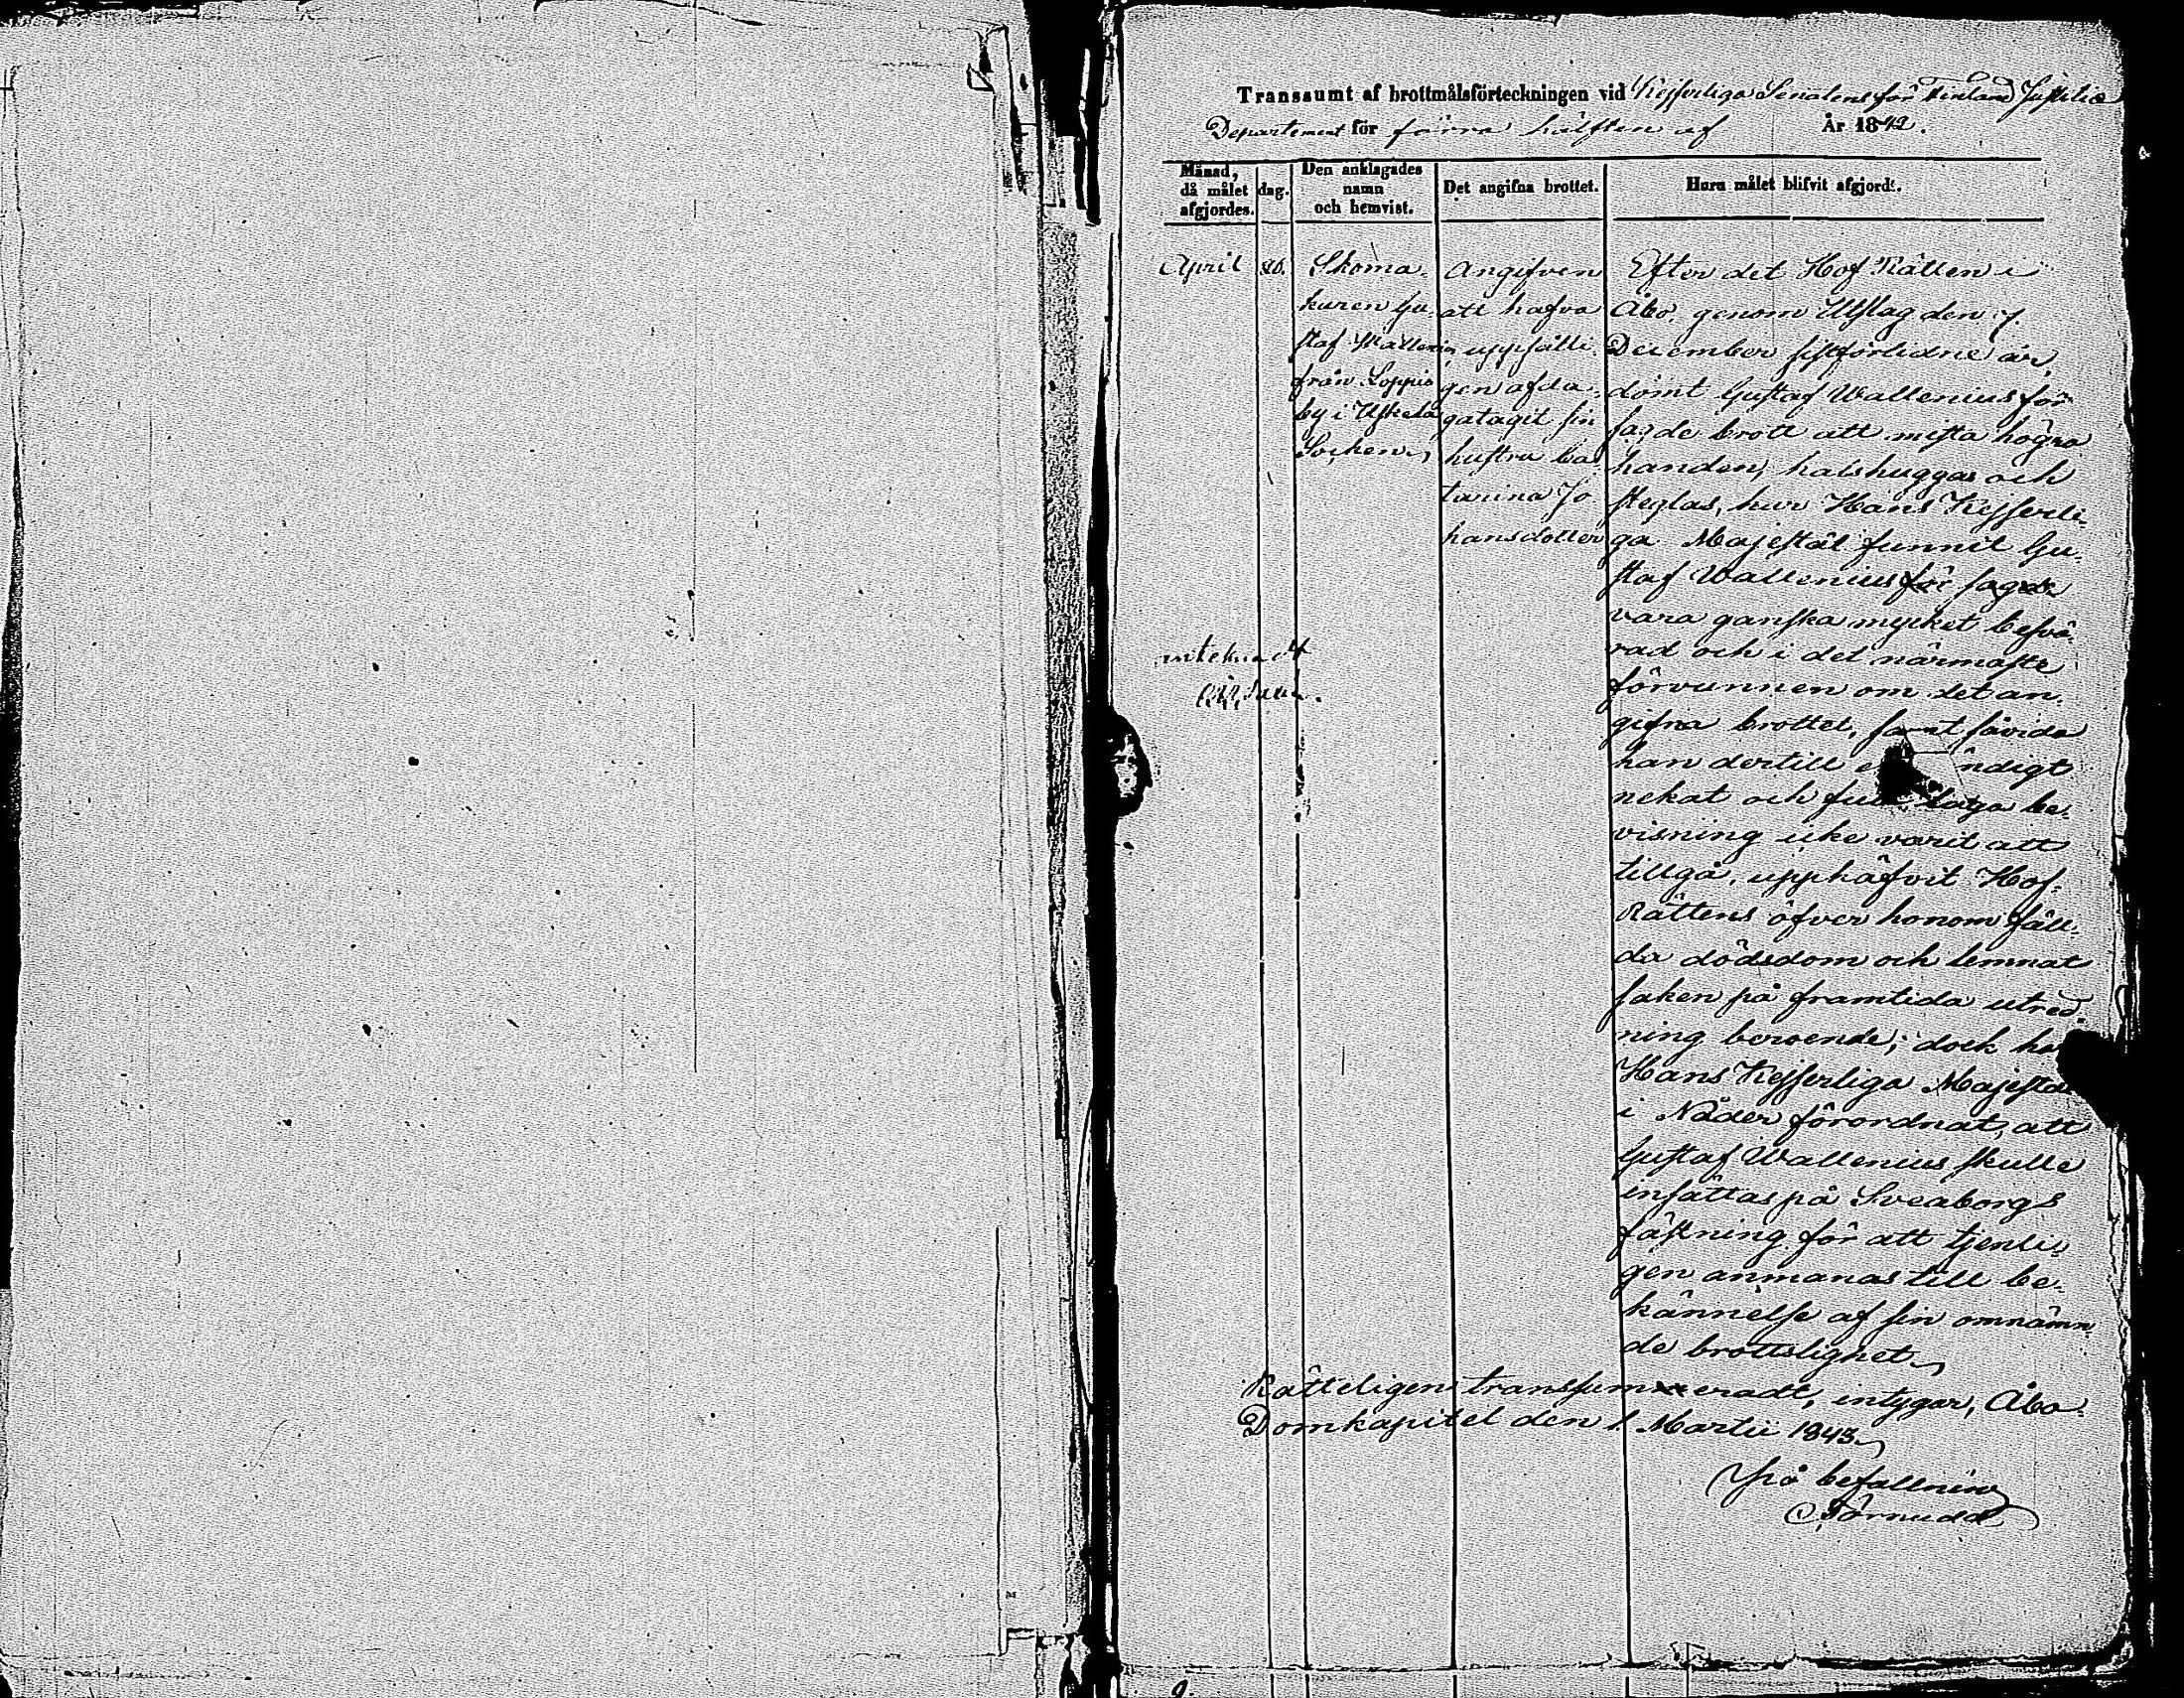 Transsumt af brottmålsförteckningen vid Kejserliga Senatens för Finland Justitiæ
Departement för förra hälften af År 1842.
Månad,
då målet
afgjordes.
dag.
Den anklagades
namn
och hemvist.
Det angifna brottet.
Huru målet blifvit afgjordt.
April
Skoma-
karen Gu-
staf Wallenius
från Loppis
by i Uskela
Socken,
Angifven
att hafva
uppsåtli-
gen afda-
gatagit sin
hustru Ca-
tarina Jo-
hansdotter
Efter det Hof Rätten i
Åbo, genom Utslag den 7.
December sistförlidne år,
dömt Gustaf Wallenius för
sagde brott att mista högra
handen, halshuggas och
steglas, har Hans Kejserli-
ga Majestät funnit Gu-
staf Wallenius för sagde
vara ganska mycket besvä-
rad och i det närmaste
förvunnen om det an-
gifna brottet, samt såvida
han dertill ndigt
nekat och full laga be-
visning icke varit att
tillgå, upphäfvit Hof-
Rättens öfver honom fäll-
da dödsdom och lemnat
saken på framtida utred-
ning beroende; dock har
Hans Kejserliga Majestät
i Nåder förordnat, att
Gustaf Wallenius skulle
insättas på Sveaborgs
fästning för att tjenli-
gen anmanas till be-
kännelse af sin omnämn-
de brottslighet,
Rätteligen transsumeradt, intygar, Åbo
Domkapitel den 1. Martii 1843.
På befallning
Törnudd